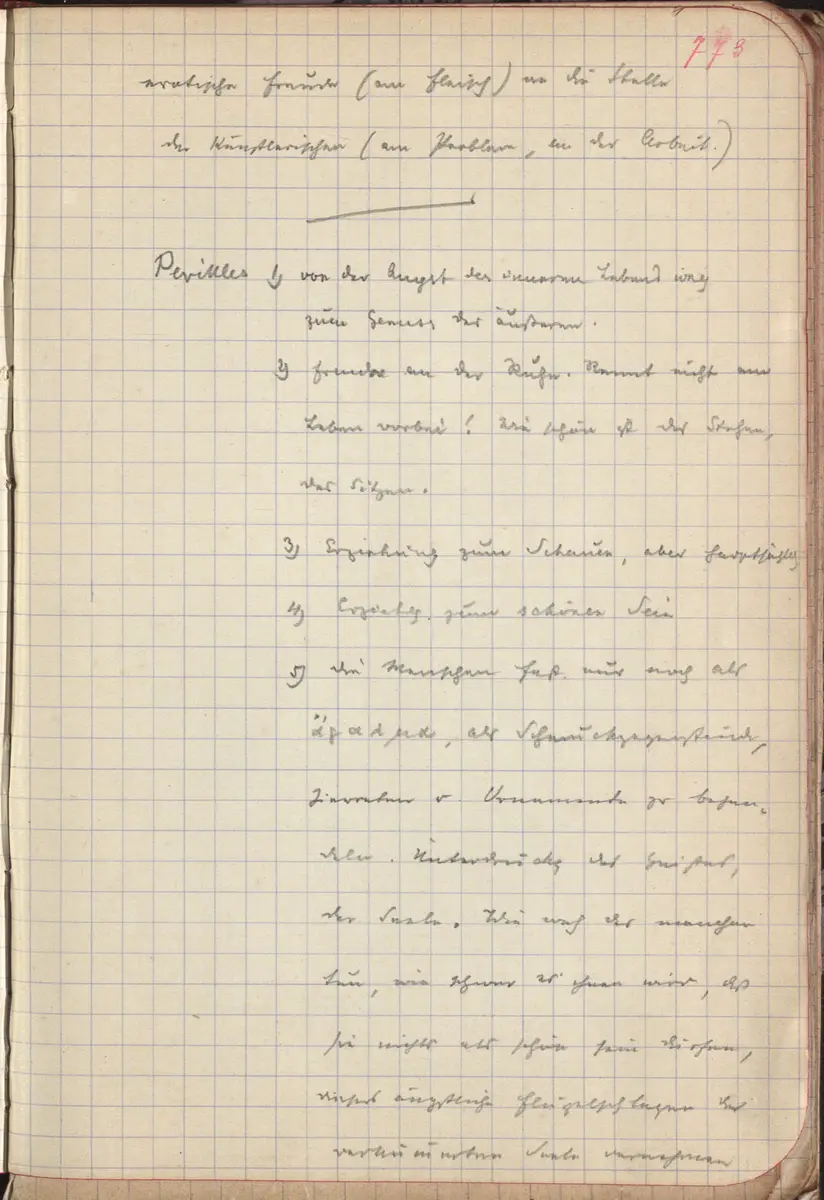 773
erotische Freude (am Fleisch) an die Stelle
der Künstlerischen (am Problem, an der Arbeit.)
Perikles 1) von der Angst des inneren Lebens weg
zum Genuss des äußeren.
2) Freude an der Ruhe. Rennt nicht am
Leben vorbei! Wie schön ist das Stehen,
das Sitzen.
3) Erziehung zum Schauen, aber hauptsächlich
4) Erziehg. zum schönen Sein
5) die Menschen fast nur noch als
als Schmuckgegenstände,
Zierraten u. Ornamente zu behan-
deln. Unterdrückg des Geistes,
der Seele. Wie weh das manchen
tut, wie schwer es ihnen wird, daß
sie nichts als schön sein dürfen,
dieses ängstliche Flügelschlagen der
verkümmerten Seele vernehmen